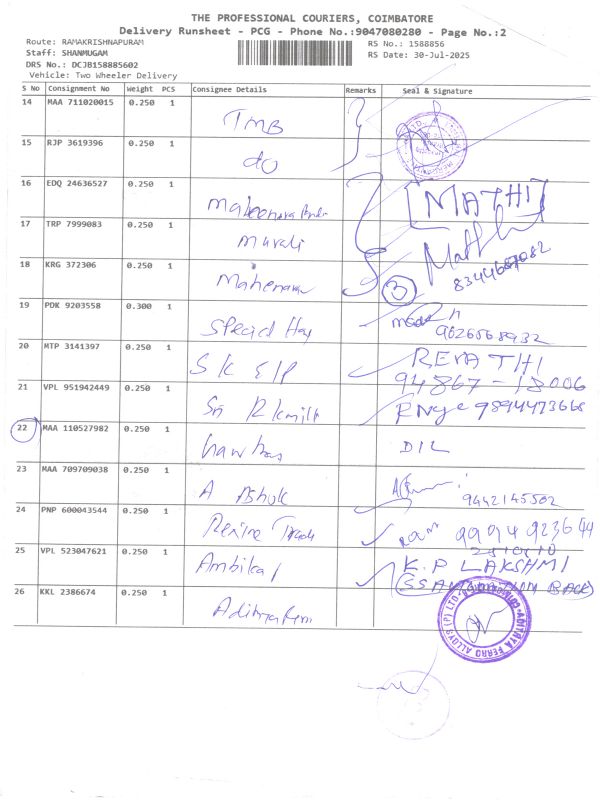 THE PROFESSIONAL COURIERS, COIMBATORE
Delivery Runsheet - PCG - Phone No.:9047080280 - Page No.:2
Route: RAMAKRISHNAPURAM RS No.: 1588856
Staff: SHANMUGAM RS Date: 30-Jul-2025
DRS No.: DCJB158885602
Vehicle: Two Wheeler Delivery
S No Consignment No Weight PCS Consignee Details Remarks Seal & Signature
14 MAA 711020015 0.250 1 TMB
15 RJP 3619396 0.250 1 do
16 EDQ 24636527 0.250 1 [MATHI]
17 TRP 7999083 0.250 1 Murali
18 KRG 372306 0.250 1 3
19 PDK 9203558 0.300 1 Special 9626568932
20 MTP 3141397 0.250 1 SK REVATHI
94867-18006
21 VPL 951942449 0.250 1 Sri 9894473668
22 MAA 110527982 0.250 1
23 MAA 709709038 0.250 1 A Ashok 9442145502
24 PNP 600043544 0.250 1 Ram
25 VPL 523047621 0.250 1 Ambika K.P LAKSHMI
26 KKL 2386674 0.250 1
ADITAYA FERRO ALLOYS (P) LTD